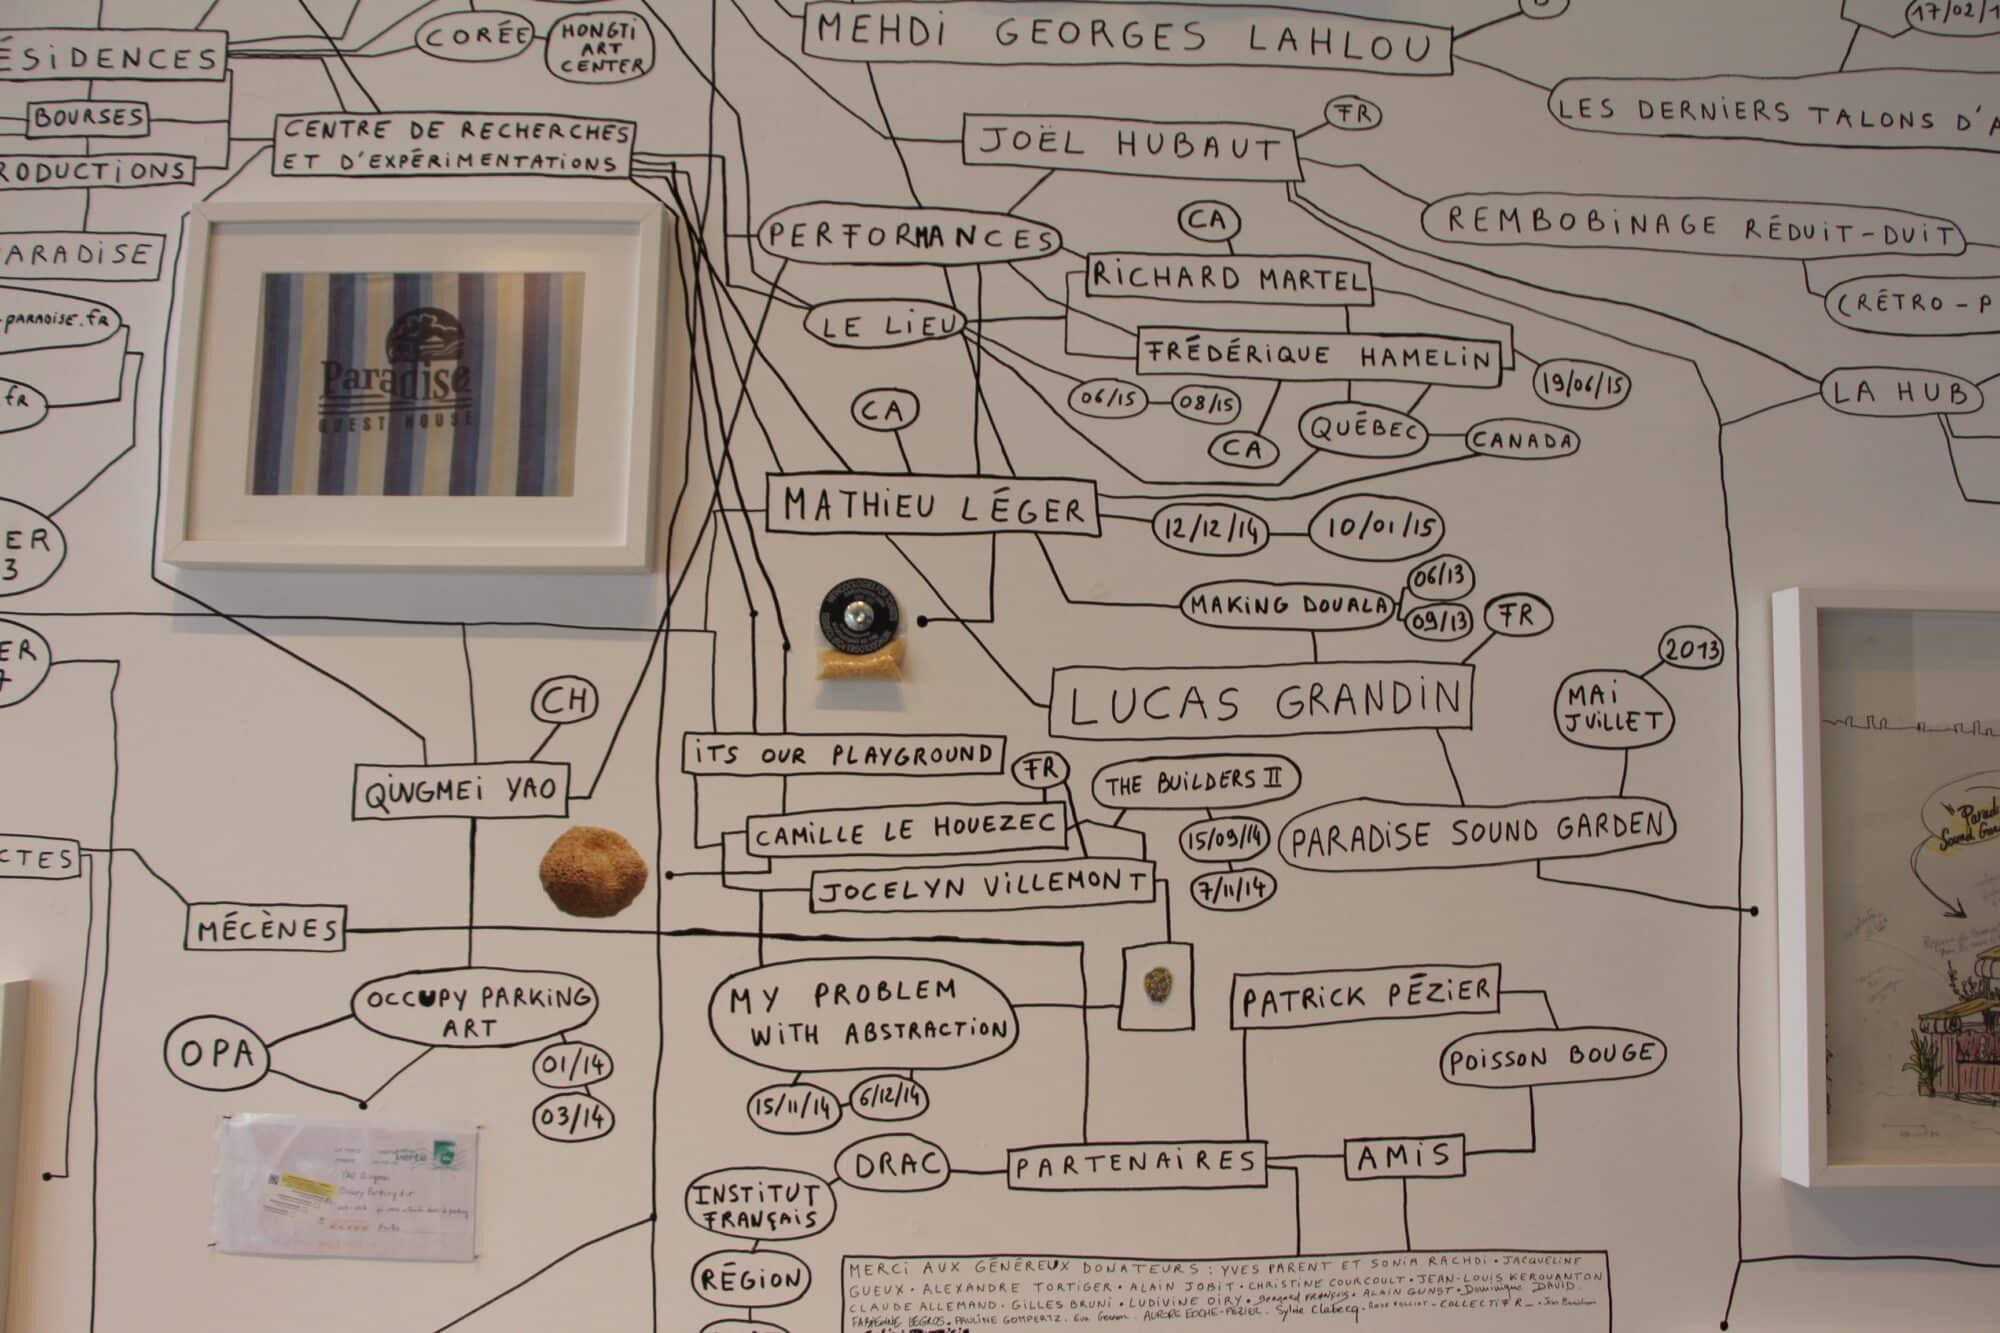 MEHDI GEORGES LAHLOU
17/02/1
ÉSIDENCES
CORÉE
HONGTI
ART
CENTER
BOURSES
LES DERNIERS TALONS D'A
CENTRE DE RECHERCHES
ET D'EXPÉRIMENTATIONS
FR
JOËL HUBAUT
RODUCTIONS
PERFORMANCES
CA
REMBOBINAGE RÉDUIT-DUIT
ARADISE
RICHARD MARTEL
(RÉTRO-P
-PARADISE.fr
LE LIEU
FRÉDÉRIQUE HAMELIN
19/06/15
LA HUB
.fr
Paradise
GUEST HOUSE
CA
06/15
08/15
CA
QUÉBEC
CANADA
MATHIEU LÉGER
12/12/14
10/01/15
ER
3
MAKING DOUALA
06/13
09/13
FR
2013
ER
7
CH
LUCAS GRANDIN
MAI
JUILLET
ITS OUR PLAYGROUND
FR
THE BUILDERS II
QINGMEI YAO
CAMILLE LE HOUEZEC
15/09/14
7/11/14
PARADISE SOUND GARDEN
CTES
JOCELYN VILLEMONT
MÉCÈNES
OCCUPY PARKING
ART
MY PROBLEM
WITH ABSTRACTION
PATRICK PÉZIER
OPA
01/14
03/14
15/11/14
6/12/14
POISSON BOUGE
DRAC
PARTENAIRES
AMIS
INSTITUT
FRANÇAIS
RÉGION
MERCI AUX GÉNÉREUX DONATEURS : YVES PARENT ET SONIA RACHDI • JACQUELINE
GUEUX • ALEXANDRE TORTIGER • ALAIN JOBIT • CHRISTINE COURCOULT • JEAN-LOUIS KEROUANTON
CLAUDE ALLEMAND • GILLES BRUNI • LUDIVINE OIRY • Bernard FRANÇOIS • ALAIN GUNST • Dominique DAVID
FABIENNE LEGROS • PAULINE GOMPERTZ . Eva . AURORE PÉZIER . Sylvie Clabecq . COLLECTIF R